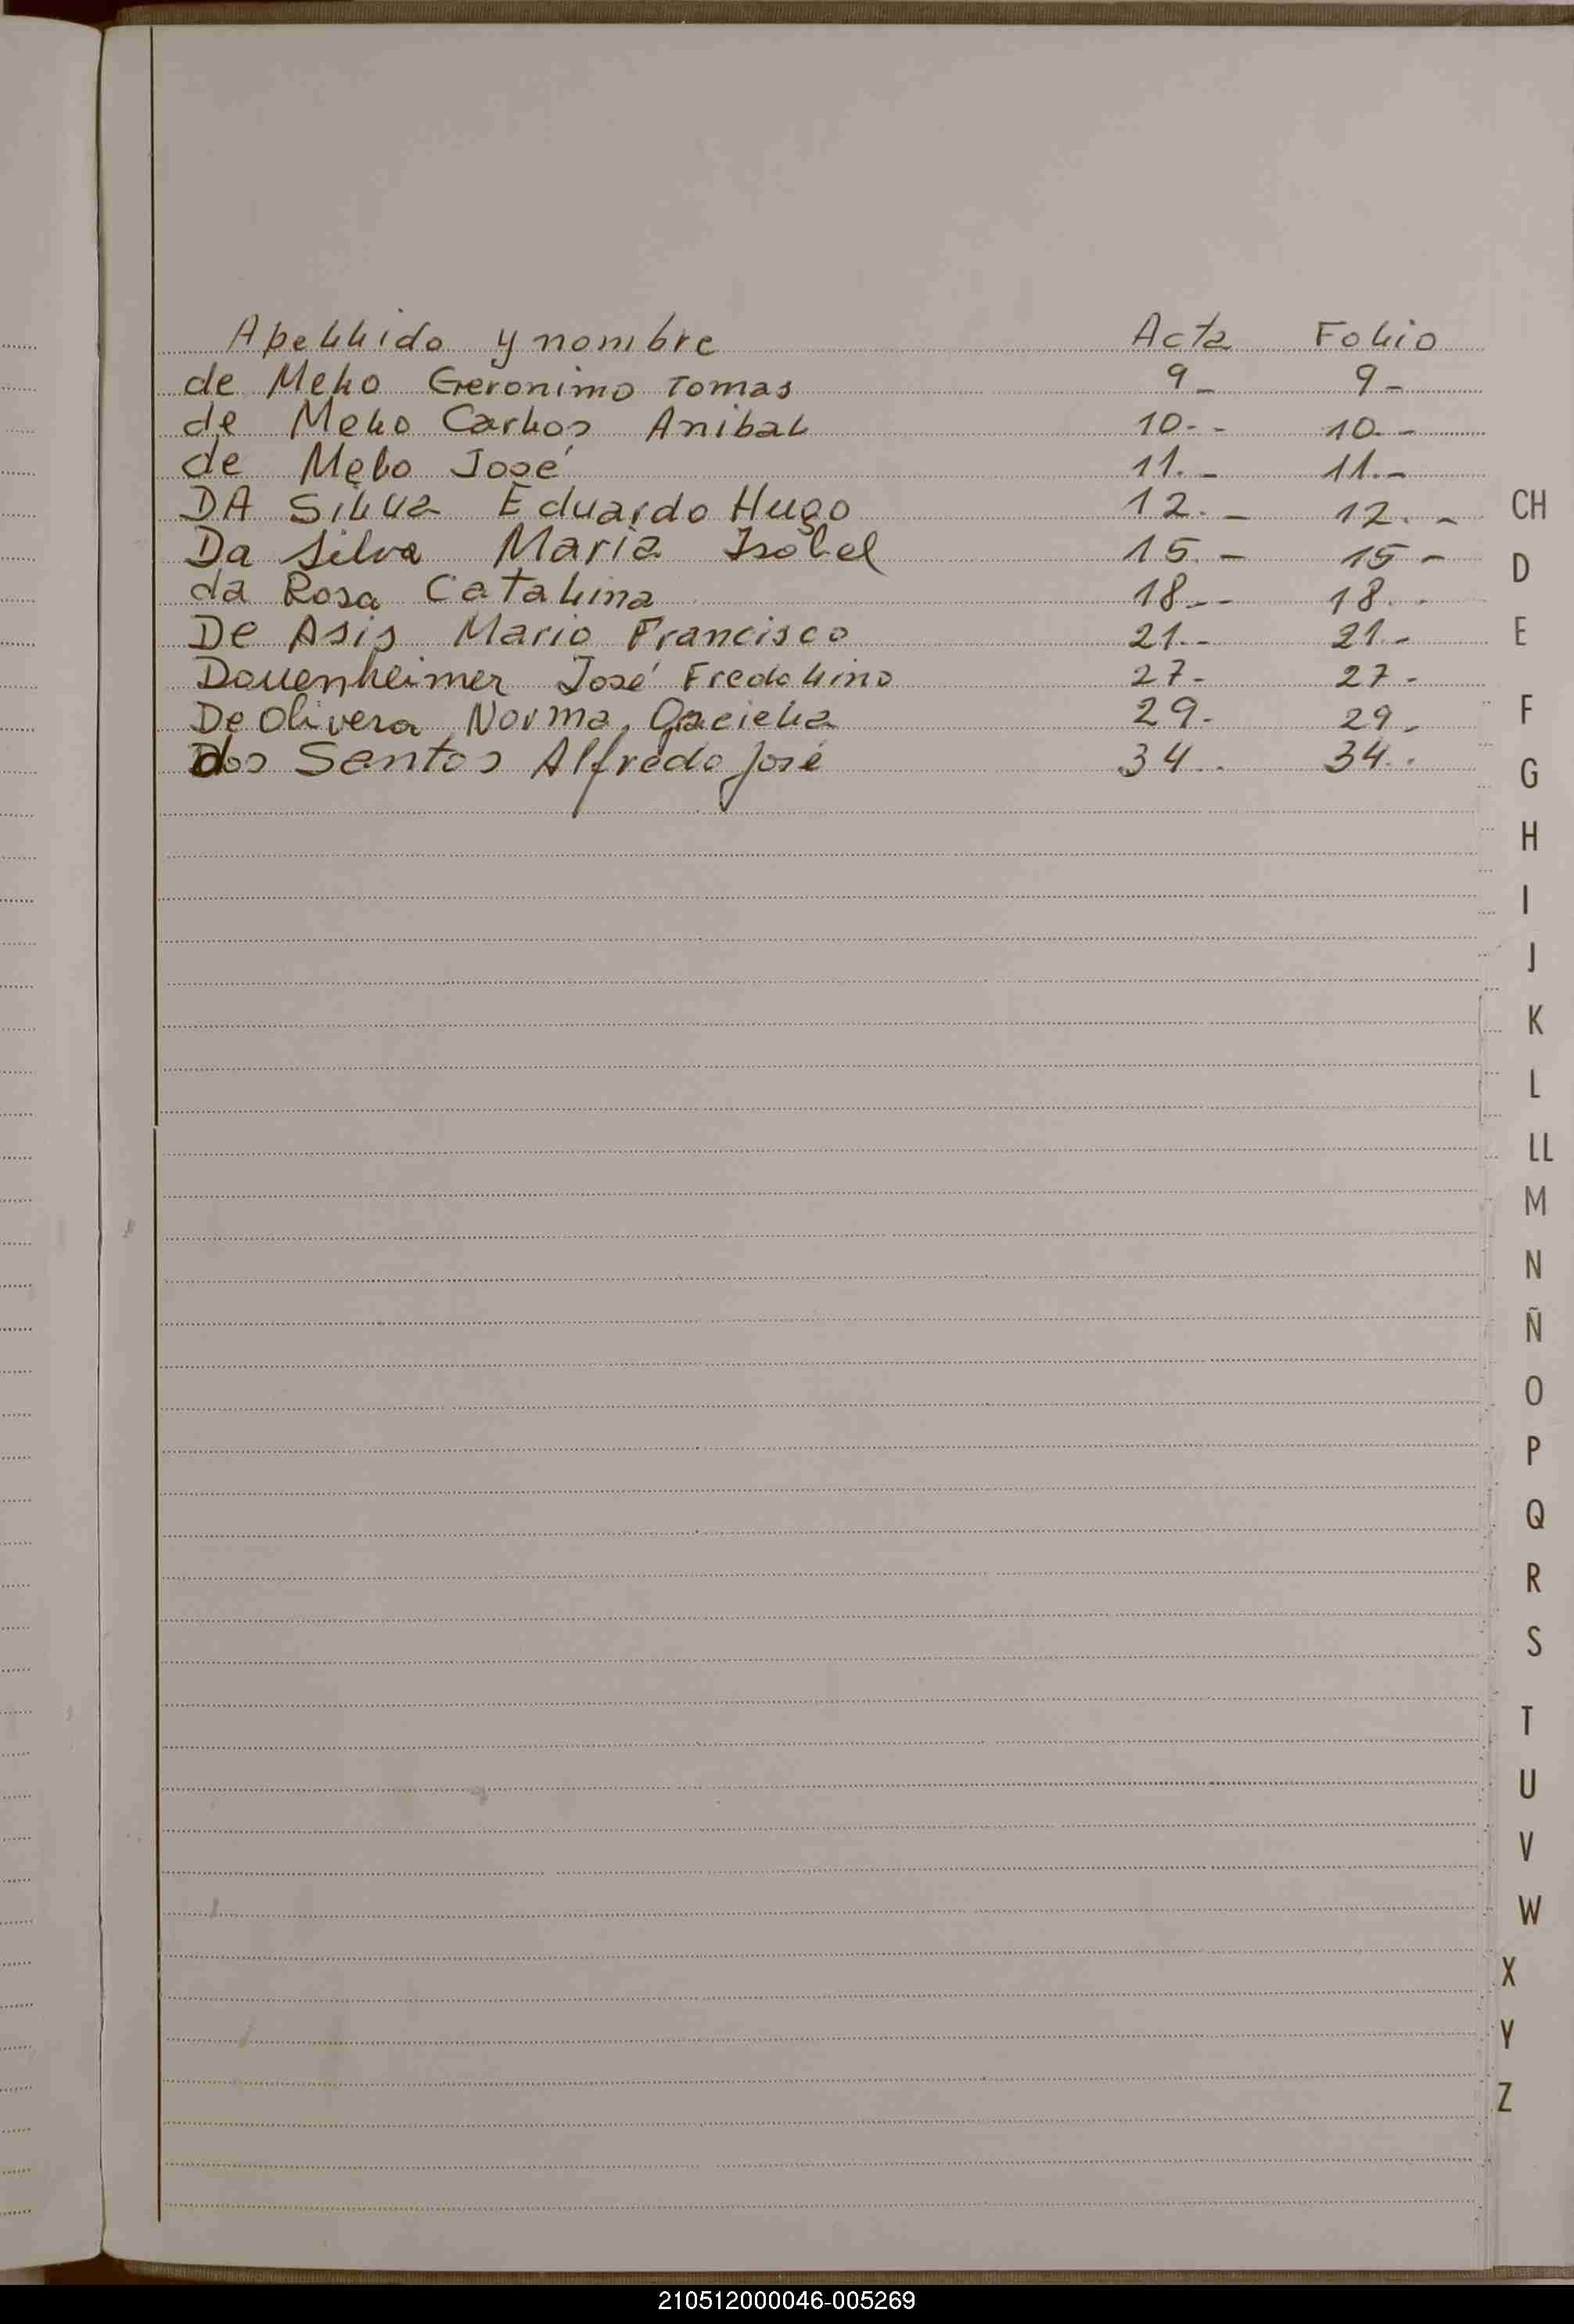 Apellido y nombre Acta Folio
de Melo Geronimo Tomas 9- 9-
de Melo Carlos Anibal 10.- 10.-
de Melo José 11.- 11.-
DA Silva Eduardo Hugo 12.- 12.-
Da Silva Maria Isabel 15.- 15-
da Rosa Catalina 18.- 18..
De Asis Mario Francisco 21.- 21.-
Dauenheimer José Fredolino 27- 27-
De Olivera Norma Gaciela 29.- 29.
dos Santos Alfredo José 34.. 34..
CH
D
E
F
G
H
I
J
K
L
LL
M
N
Ñ
O
P
Q
R
S
T
U
V
W
X
Y
Z
210512000046-005269